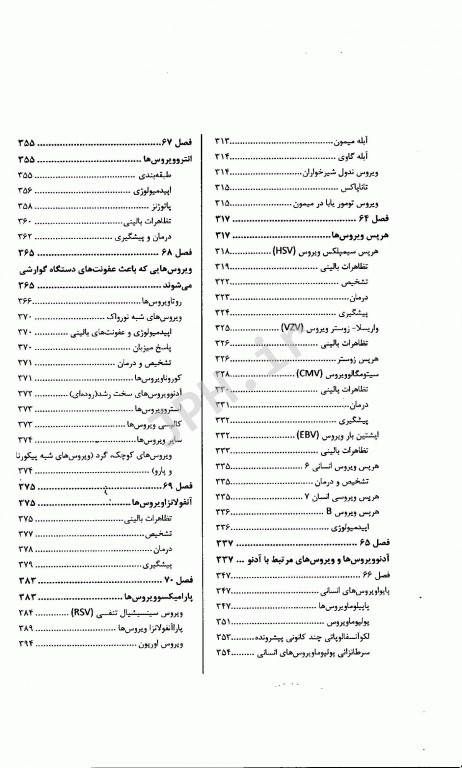 آبله میمون..........۳۱۳
آبله گاوی..........۳۱۴
ویروس ندول شیرخواران..........۳۱۴
تاناپاکس..........۳۱۵
ویروس تومور یابا در میمون..........۳۱۵
فصل ۶۴..........۳۱۷
هرپس ویروس‌ها..........۳۱۷
هرپس سیمپلکس ویروس (HSV)..........۳۱۸
تظاهرات بالینی..........۳۱۹
تشخیص..........۳۲۲
درمان..........۳۲۳
پیشگیری..........۳۲۴
واریسلا- زوستر ویروس (VZV)..........۳۲۵
تظاهرات بالینی..........۳۲۶
هرپس زوستر..........۳۲۶
سیتومگالوویروس (CMV)..........۳۲۸
تظاهرات بالینی..........۳۳۰
درمان..........۳۳۱
پیشگیری..........۳۳۲
اپشتین بار ویروس (EBV)..........۳۳۲
تظاهرات بالینی..........۳۳۳
هرپس ویروس انسانی ۶..........۳۳۵
تشخیص و درمان..........۳۳۵
هرپس ویروسی انسان ۷..........۳۳۵
هرپس ویروس B..........۳۳۶
اپیدمیولوژی..........۳۳۶
فصل ۶۵..........۳۳۷
آدنوویروس‌ها و ویروس‌های مرتبط با آدنو ... ۳۳۷
فصل ۶۶..........۳۴۷
پاپواویروس‌های انسانی..........۳۴۷
پاپیلوماویروس‌ها..........۳۴۷
پولیوماویروس..........۳۵۱
لکوآنسفالوپاتی چند کانونی پیشرونده..........۳۵۳
سرطانزائی پولیوماویروس‌های انسانی..........۳۵۴
فصل ۶۷..........۳۵۵
انتروویروس‌ها..........۳۵۵
طبقه‌بندی..........۳۵۵
اپیدمیولوژی..........۳۵۶
پاتوژنز..........۳۵۸
تظاهرات بالینی..........۳۶۰
درمان و پیشگیری..........۳۶۲
فصل ۶۸..........۳۶۵
ویروس‌هایی که باعث عفونت‌های دستگاه گوارشی
می‌شوند..........۳۶۵
روتاویروس‌ها..........۳۶۶
ویروس‌های شبه نورواک..........۳۷۰
اپیدمیولوژی و عفونت‌های بالینی..........۳۷۰
پاسخ میزبان..........۳۷۰
تشخیص و درمان..........۳۷۱
کوروناویروس‌ها..........۳۷۱
آدنوویروس‌های سخت رشد(روده‌ای)..........۳۷۲
استروویروس‌ها..........۳۷۳
کالیسی ویروس‌ها..........۳۷۳
سایر ویروس‌ها..........۳۷۴
ویروس‌های کوچک، گرد (ویروس‌های شبه پیکورنا
و پارو)..........۳۷۴
فصل ۶۹..........۳۷۵
آنفولانزاویروس‌ها..........۳۷۵
تظاهرات بالینی..........۳۷۵
تشخیص..........۳۷۷
درمان..........۳۷۸
پیشگیری..........۳۷۹
فصل ۷۰..........۳۸۳
پارامیکسوویروس‌ها..........۳۸۳
ویروس سینسیشیال تنفسی (RSV)..........۳۸۴
پاراآنفولانزا ویروس‌ها..........۳۸۹
ویروس اوریون..........۳۹۴
JPH.ir